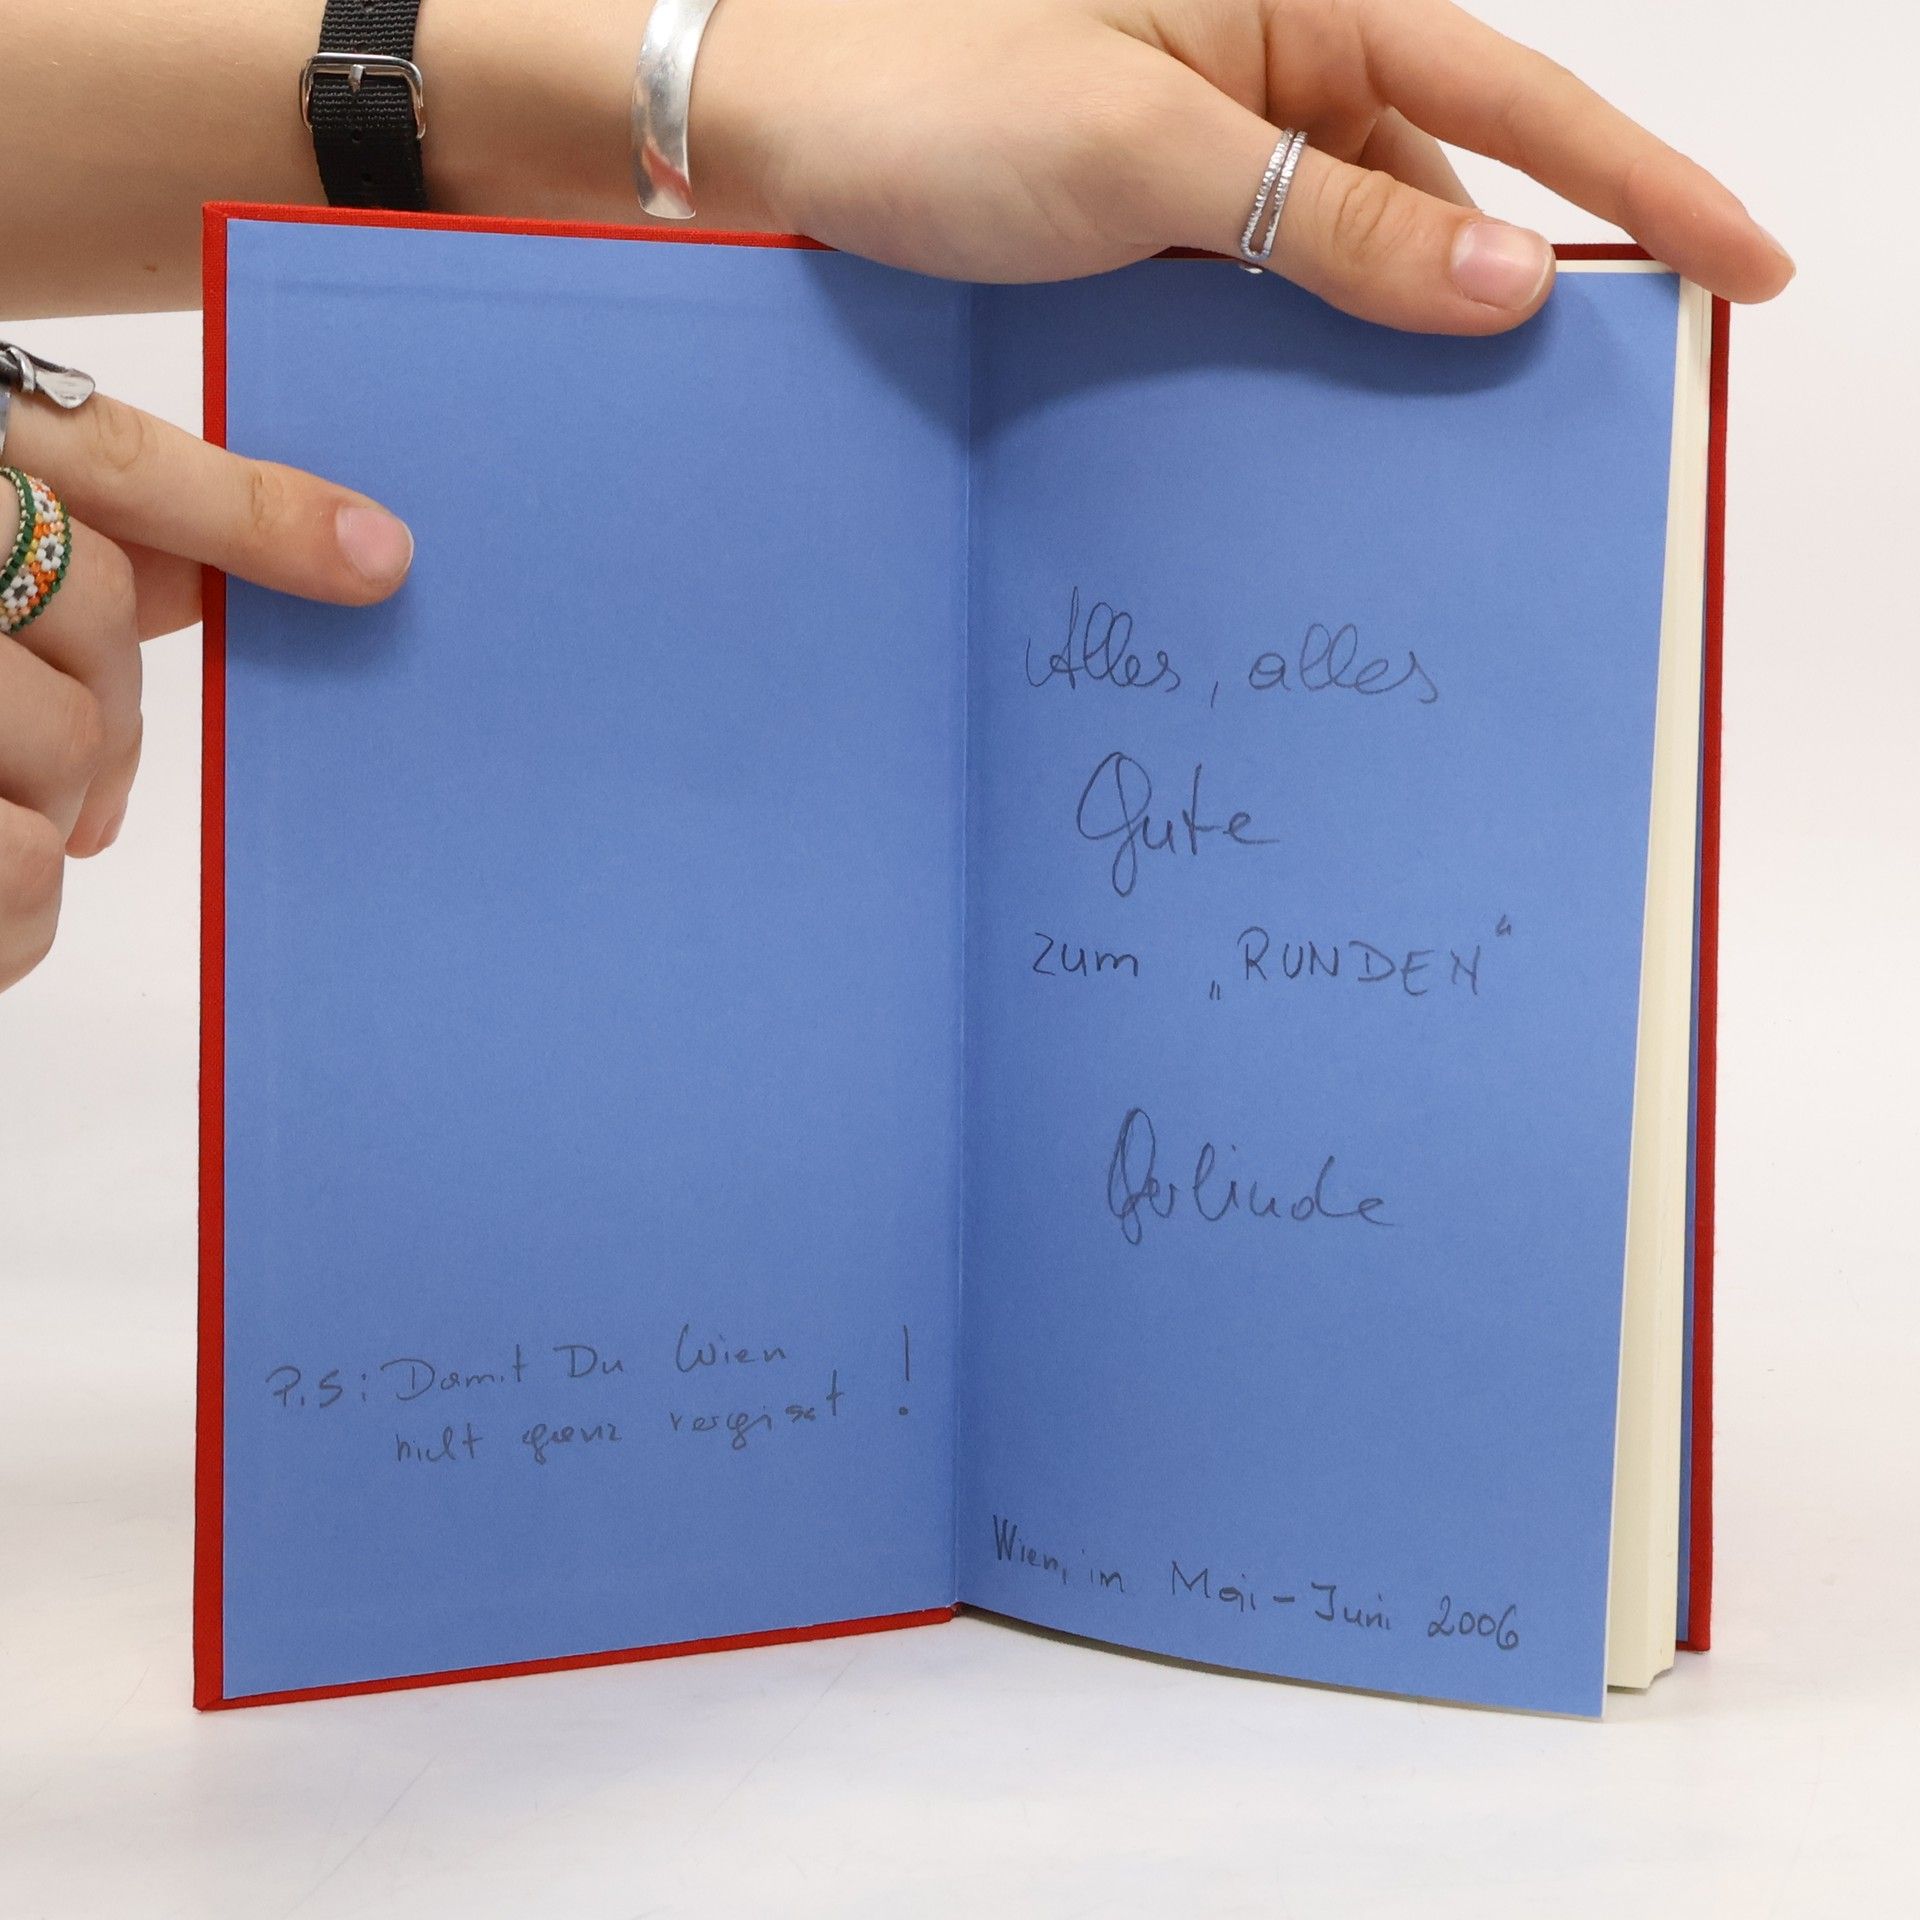 Alles, alles
Gute
zum „RUNDEN“
Gerlinde
P.S: Damit Du Wien
nicht ganz vergisst !
Wien, im Mai-Juni 2006